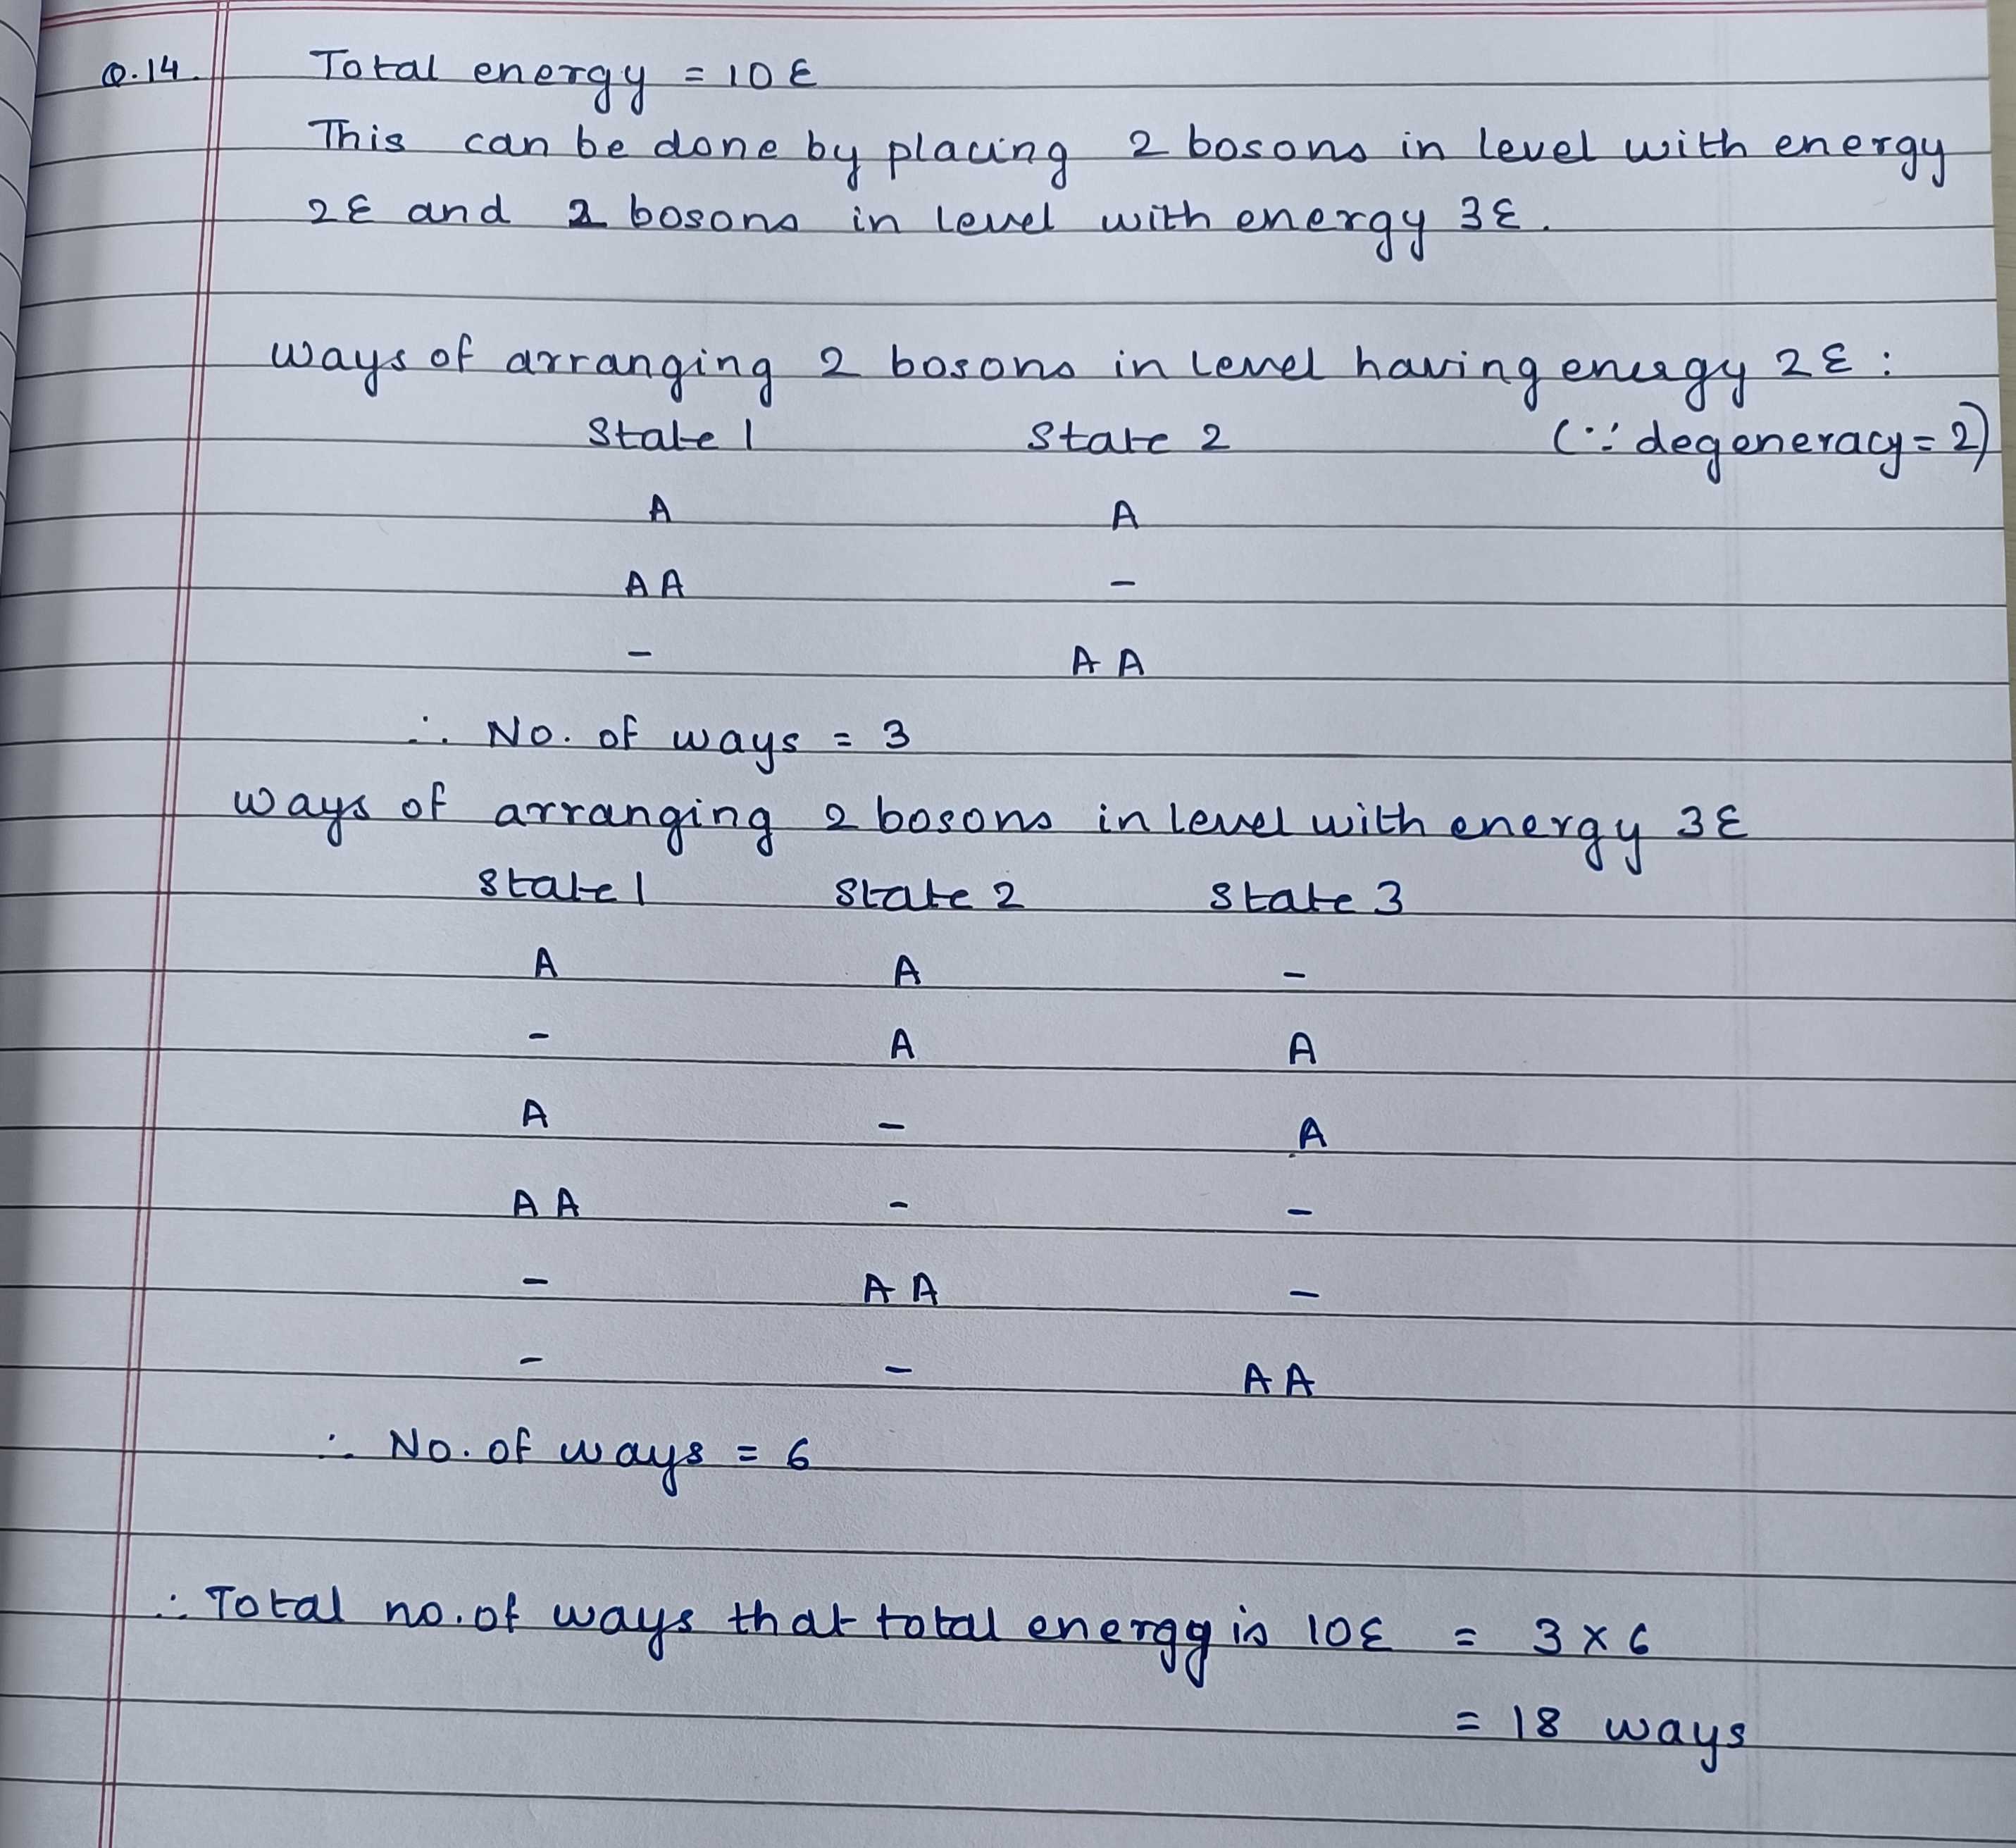 Q.14. Total energy = 10 ε
This can be done by placing 2 bosons in level with energy
2ε and 2 bosons in level with energy 3ε.
ways of arranging 2 bosons in level having energy 2ε :
State 1 State 2 (∵ degeneracy = 2)
A A
A A -
- A A
∴ No. of ways = 3
ways of arranging 2 bosons in level with energy 3ε
State 1 State 2 State 3
A A -
- A A
A - A
A A - -
- A A -
- - A A
∴ No. of ways = 6
∴ Total no. of ways that total energy is 10ε = 3 × 6
= 18 ways